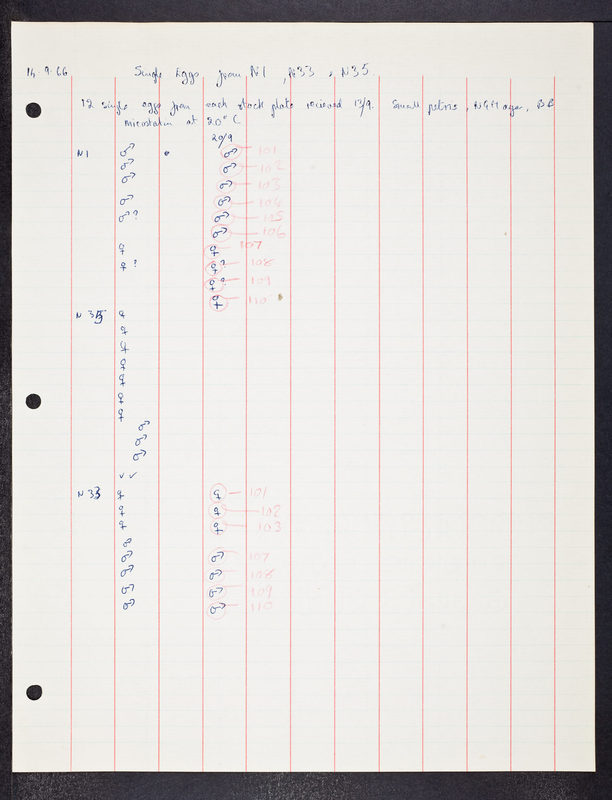 14.9.66 Single Eggs from N1, N33, N35.
12 single eggs from each stock plate received 13/9. Small petris, NGM agar,
at 20° C
20/9
N1 ♂ ♂ 101
♂ ♂ 102
♂ ♂ 103
♂ ♂ 104
♂? ♂ 105
♂ 106
♀ ♀ 107
♀? ♀? 108
♀? 109
♀ 110
N 35 ♀
♀
♀
♀
♀
♀
♀
♂
♂
♂
✓✓
N 33 ♀ ♀ 101
♀ ♀ 102
♀ ♀ 103
♂ ♂ 107
♂ ♂ 108
♂ ♂ 109
♂ ♂ 110